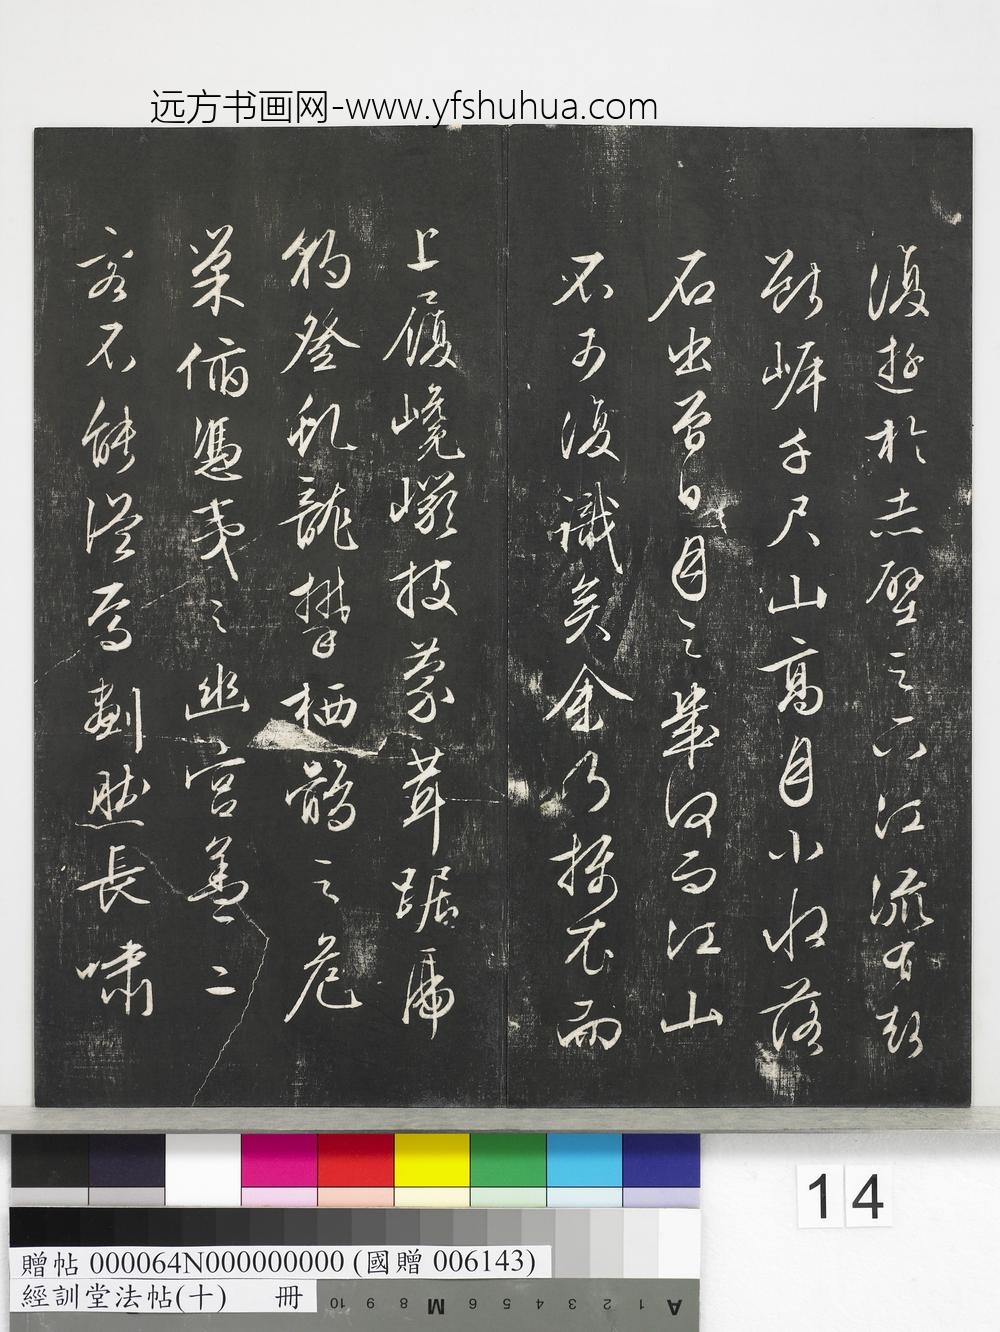 远方书画网-www.yfshuhua.com
復遊於赤壁之下江流有聲
斷岸千尺山高月小水落
石出曾日月之幾何而江山
不可復識矣余乃攝衣而
上履巉巖披蒙茸踞虎
豹登虬龍攀栖鶻之危
巢俯憑夷之幽宮蓋二
客不能從焉劃然長嘯
14
贈帖 000064N000000000 (國贈 006143)
經訓堂法帖(十) 冊
10 9 8 M 6 5 4 3 2 1 A